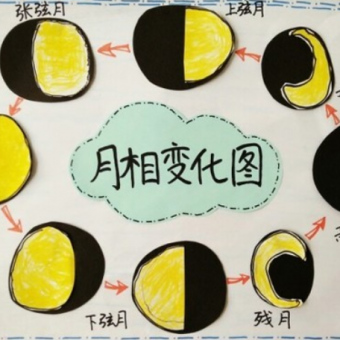 张弦月
上弦月
月相变化图
下弦月
残月